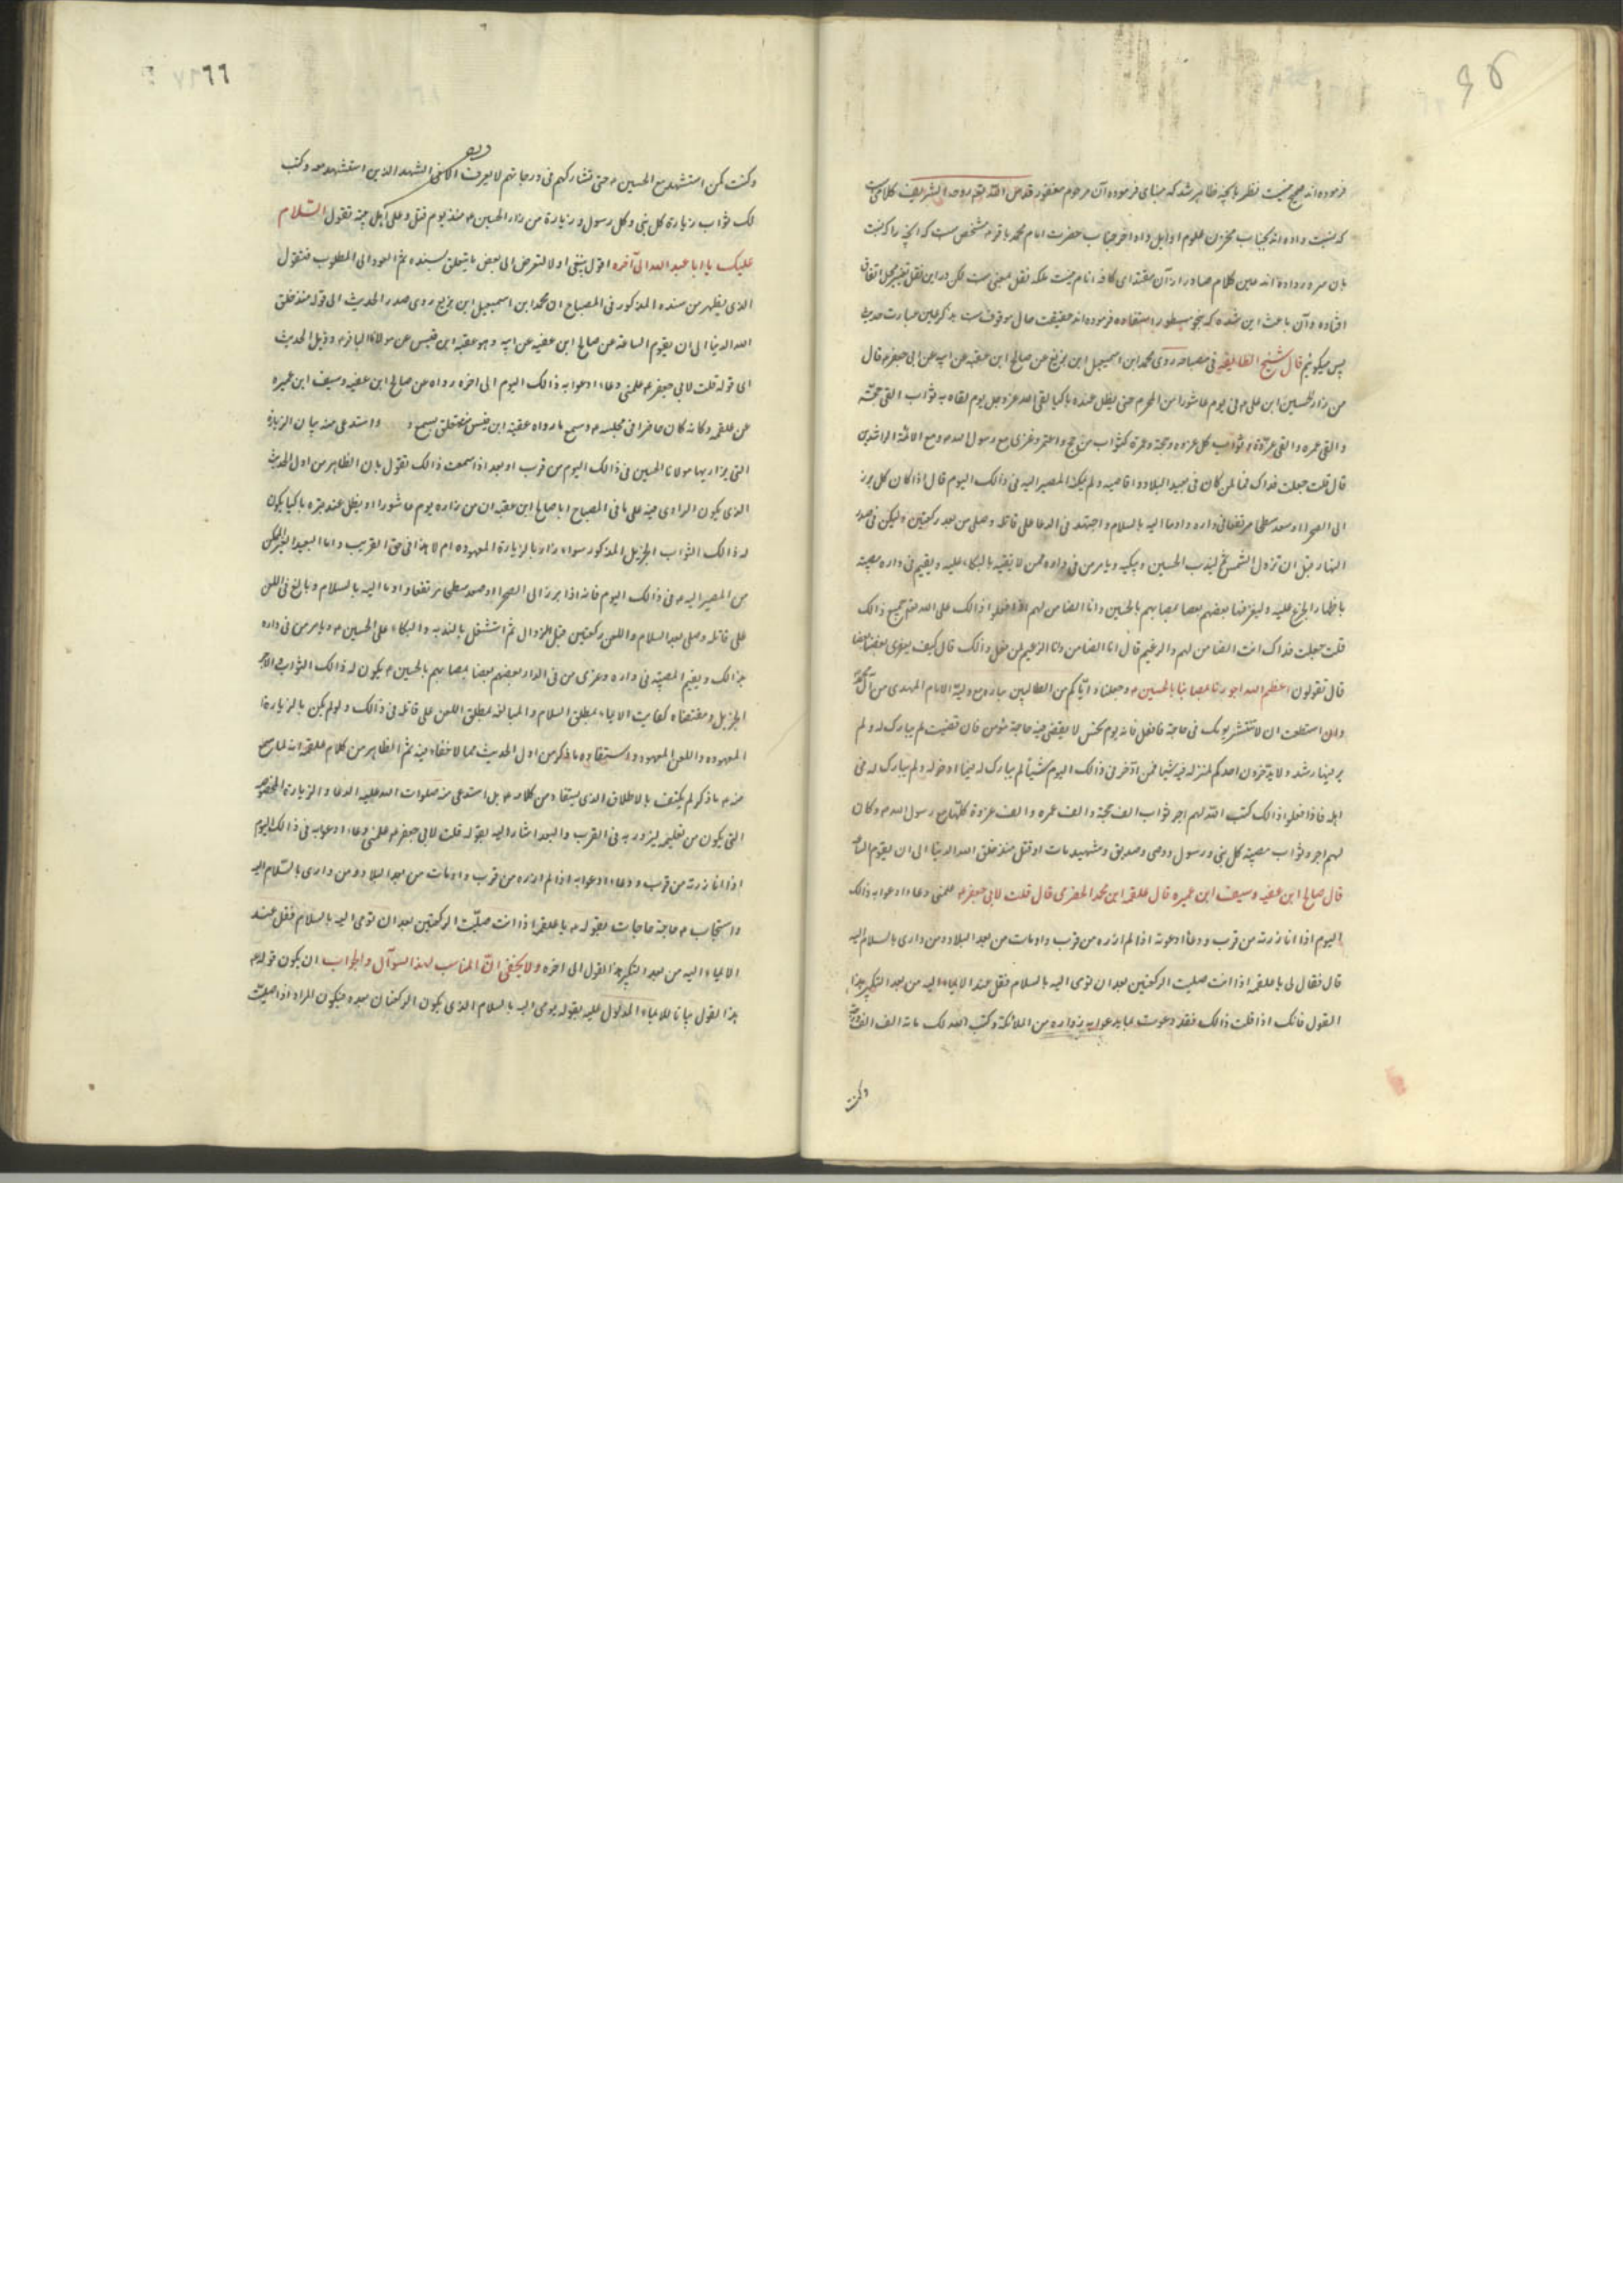 فرموده اند صحیح نیست نظر بانکه ظاهر شد که مبنای فرموده آن مرحوم مغفور قدس الله روحه الشریف کلامی است
که نسبت داده اند بجناب مخزن علوم اوایل و اواخر جناب حضرت امام محمد باقر م مشخص است که آنچه را که نسبت
بان سرور داده اند عین کلام صادر از آن مقتدای کافه انام نیست بلکه نقل بمعنی است لکن در این نقل تغییر مخل اتفاق
افتاده و آن باعث این شده که بنحو مسطور استفاده فرموده اند حقیقت حال موقوف است بذکر عین عبارت حدیث
پس میکوئیم قال شیخ الطایفه فی مصباحه روی محمد ابن اسمعیل ابن بزیع عن صالح ابن عقبه عن ابیه عن ابی جعفر م قال
من زار الحسین ابن علی م فی یوم عاشورا من المحرم حتی یظل عنده باکیا لقی الله عز و جل یوم لقاه به ثواب الفی حجّة
و الفی عمره و الفی غزوة و ثواب کل غزوه و حجة و عمرة کثواب من حج و اعتمر و غزی مع رسول الله م و مع الائمة الراشدین
قال قلت جعلت فداک فما لمن کان فی بعید البلاد و اقاصیه و لم یمکنه المصیر الیه فی ذالک الیوم قال اذا کان کل برز
الی الصحرا او صعد سطحا مرتفعا فی داره و اوما الیه بالسلام و اجتهد فی الدعا علی قاتله و صلی من بعد رکعتین و لیکن فی صدر
النهار قبل ان تزول الشمس ثم لیندب الحسین و یبکیه و یامر من فی داره ممن لا یتقیه بالبکاء علیه و یقیم فی داره مصیبته
باظهار الجزع علیه و لیعز فیها بعضهم بعضا بمصابهم بالحسین و انا الضامن لهم اذا فعلوا ذالک علی الله جمیع ذالک
قلت جعلت فداک انت الضامن لهم و الزعیم قال انا الضامن و انا الزعیم لمن فعل ذالک قال کیف یعزی بعضنا بعضا
قال تقولون اعظم الله اجورنا بمصابنا بالحسین م و جعلنا و ایّاکم من الطالبین بثاره مع ولیّه الامام المهدی من آل محمد
و ان استطعت ان لا تنتشر یومک فی حاجة فافعل فانه یوم نحس لا یقضی فیه حاجة مؤمن فان قضیت لم یبارک له و لم
یر فیها رشد و لا یدّخرن احدکم لمنزله فیه شیئا فمن ادّخر فی ذالک الیوم شیئا لم یبارک له فیما ادخره و لم یبارک له فی
اهله فاذا فعلوا ذالک کتب الله لهم اجر ثواب الف حجة و الف عمره و الف غزوة کلها مع رسول الله م و کان
لهم اجر و ثواب مصیبة کل نبی و رسول و وصی و صدیق و شهید مات او قتل منذ خلق الله الدنیا الی ان یقوم الساعه
قال صالح ابن عقبه و سیف ابن عمیره قال علقمه ابن محمد الحضرمی قال قلت لابی جعفر م علمنی دعاء ادعو به ذالک
الیوم اذا انا زرته من قرب و دعاء ادعو به اذا لم ازره من قرب و اومات من بعد البلاد و من داری بالسلام الیه
قال فقال لی یا علقمه اذا انت صلیت الرکعتین بعد ان تومی الیه بالسلام فقل عند الایماء الیه من بعد التکبیر هذا
القول فانک اذا قلت ذالک فقد دعوت بما یدعو به زواره من الملائکة و کتب الله لک مائة الف الف درجة
وکنت
٦٦
وکنت کمن استشهد مع الحسین م حتی تشارکهم فی درجاتهم لا یعرف الا فی الشهداء الذین استشهدو معه و کتب
لک ثواب زیارة کل نبی و کل رسول و زیارة من زار الحسین م منذ یوم قتل و علی اهل بیته تقول السّلام
علیک یا ابا عبد الله الی آخره اقول ینبغی اولا التعرض الی بعض ما یتعلق بسنده ثم العود الی المطلوب فنقول
الذی یظهر من سنده المذکور فی المصباح ان محمد ابن اسمعیل ابن بزیع روی صدر الحدیث الی قوله منذ خلق
الله الدنیا الی ان یقوم الساعة عن صالح ابن عقبه عن ابیه و هو عقبه ابن قیس عن مولانا الباقر م و ذیل الحدیث
ای قوله قلت لابی جعفر م علمنی دعاء ادعو به ذالک الیوم الی اخره رواه عن صالح ابن عقبه و سیف ابن عمیره
عن علقمه و کانه کان حاضرا فی مجلسه م و سمع ما رواه عقبه ابن قیس و استدعی منه بیان الزیارة
التی یزار بها مولانا الحسین فی ذالک الیوم من قرب او بعد اذا سمعت ذالک نقول بان الظاهر من اول الحدیث
الذی یکون الراوی فیه علی ما فی المصباح ابا صالح ابن عقبه ان من زاره یوم عاشورا او یظل عند قبره باکیا یکون
له ذالک الثواب الجزیل المذکور سواء زار بالزیارة المعهوده ام لا هذا فی حق القریب و اما البعید الغیر المتمکن
من المصیر الیه م فی ذالک الیوم فانه اذا برز الی الصحرا او صعد سطحا مرتفعا و اوما الیه بالسلام و بالغ فی اللعن
علی قاتله و صلی بعد السلام و اللعن رکعتین قبل الزوال ثم اشتغل بالندبه و البکاء علی الحسین م و یامر من فی داره
بذالک و یقیم المصیبة فی داره و عزی من فی الدار بعضهم بعضا بمصابهم بالحسین م یکون له ذالک الثواب و الاجر
الجزیل و مقتضاه کفایت الایماء بمطلق السلام و المبالغه بمطلق اللعن علی قاتله فی ذالک و لو لم یکن بالزیارة
المعهوده و اللعن المعهود و استفاده ما ذکر من اول الحدیث مما لا خفاء فیه ثم الظاهر من کلام علقمه انه لما سمع
منه م ما ذکر لم یکتف بالاطلاق الذی یستفاد من کلامه م بل استدعی منه صلوات الله علیه الدعا و الزیارة المخصوصه
التی یکون من تعلیمه لیزور به فی القرب و البعد اشار الیه بقوله قلت لابی جعفر م علمنی دعاء ادعو به فی ذالک الیوم
اذا انا زرته من قرب و دعاء ادعو به اذا لم ازره من قرب و اومات من بعد البلاد و من داری بالسّلام الیه
و استجاب م حاجة بقوله م یا علقمه اذا انت صلیّت الرکعتین بعد ان تومی الیه بالسلام فقل عند
الایماء الیه من بعد التکبیر هذا القول الی اخره و لا یخفی انّ المناسب لهذا السوآل و الجواب ان یکون قوله م
هذا القول بیانا للایماء المدلول علیه بقوله یومی الیه بالسلام الذی یکون الرکعتان بعده فیکون المراد اذا صلیّت